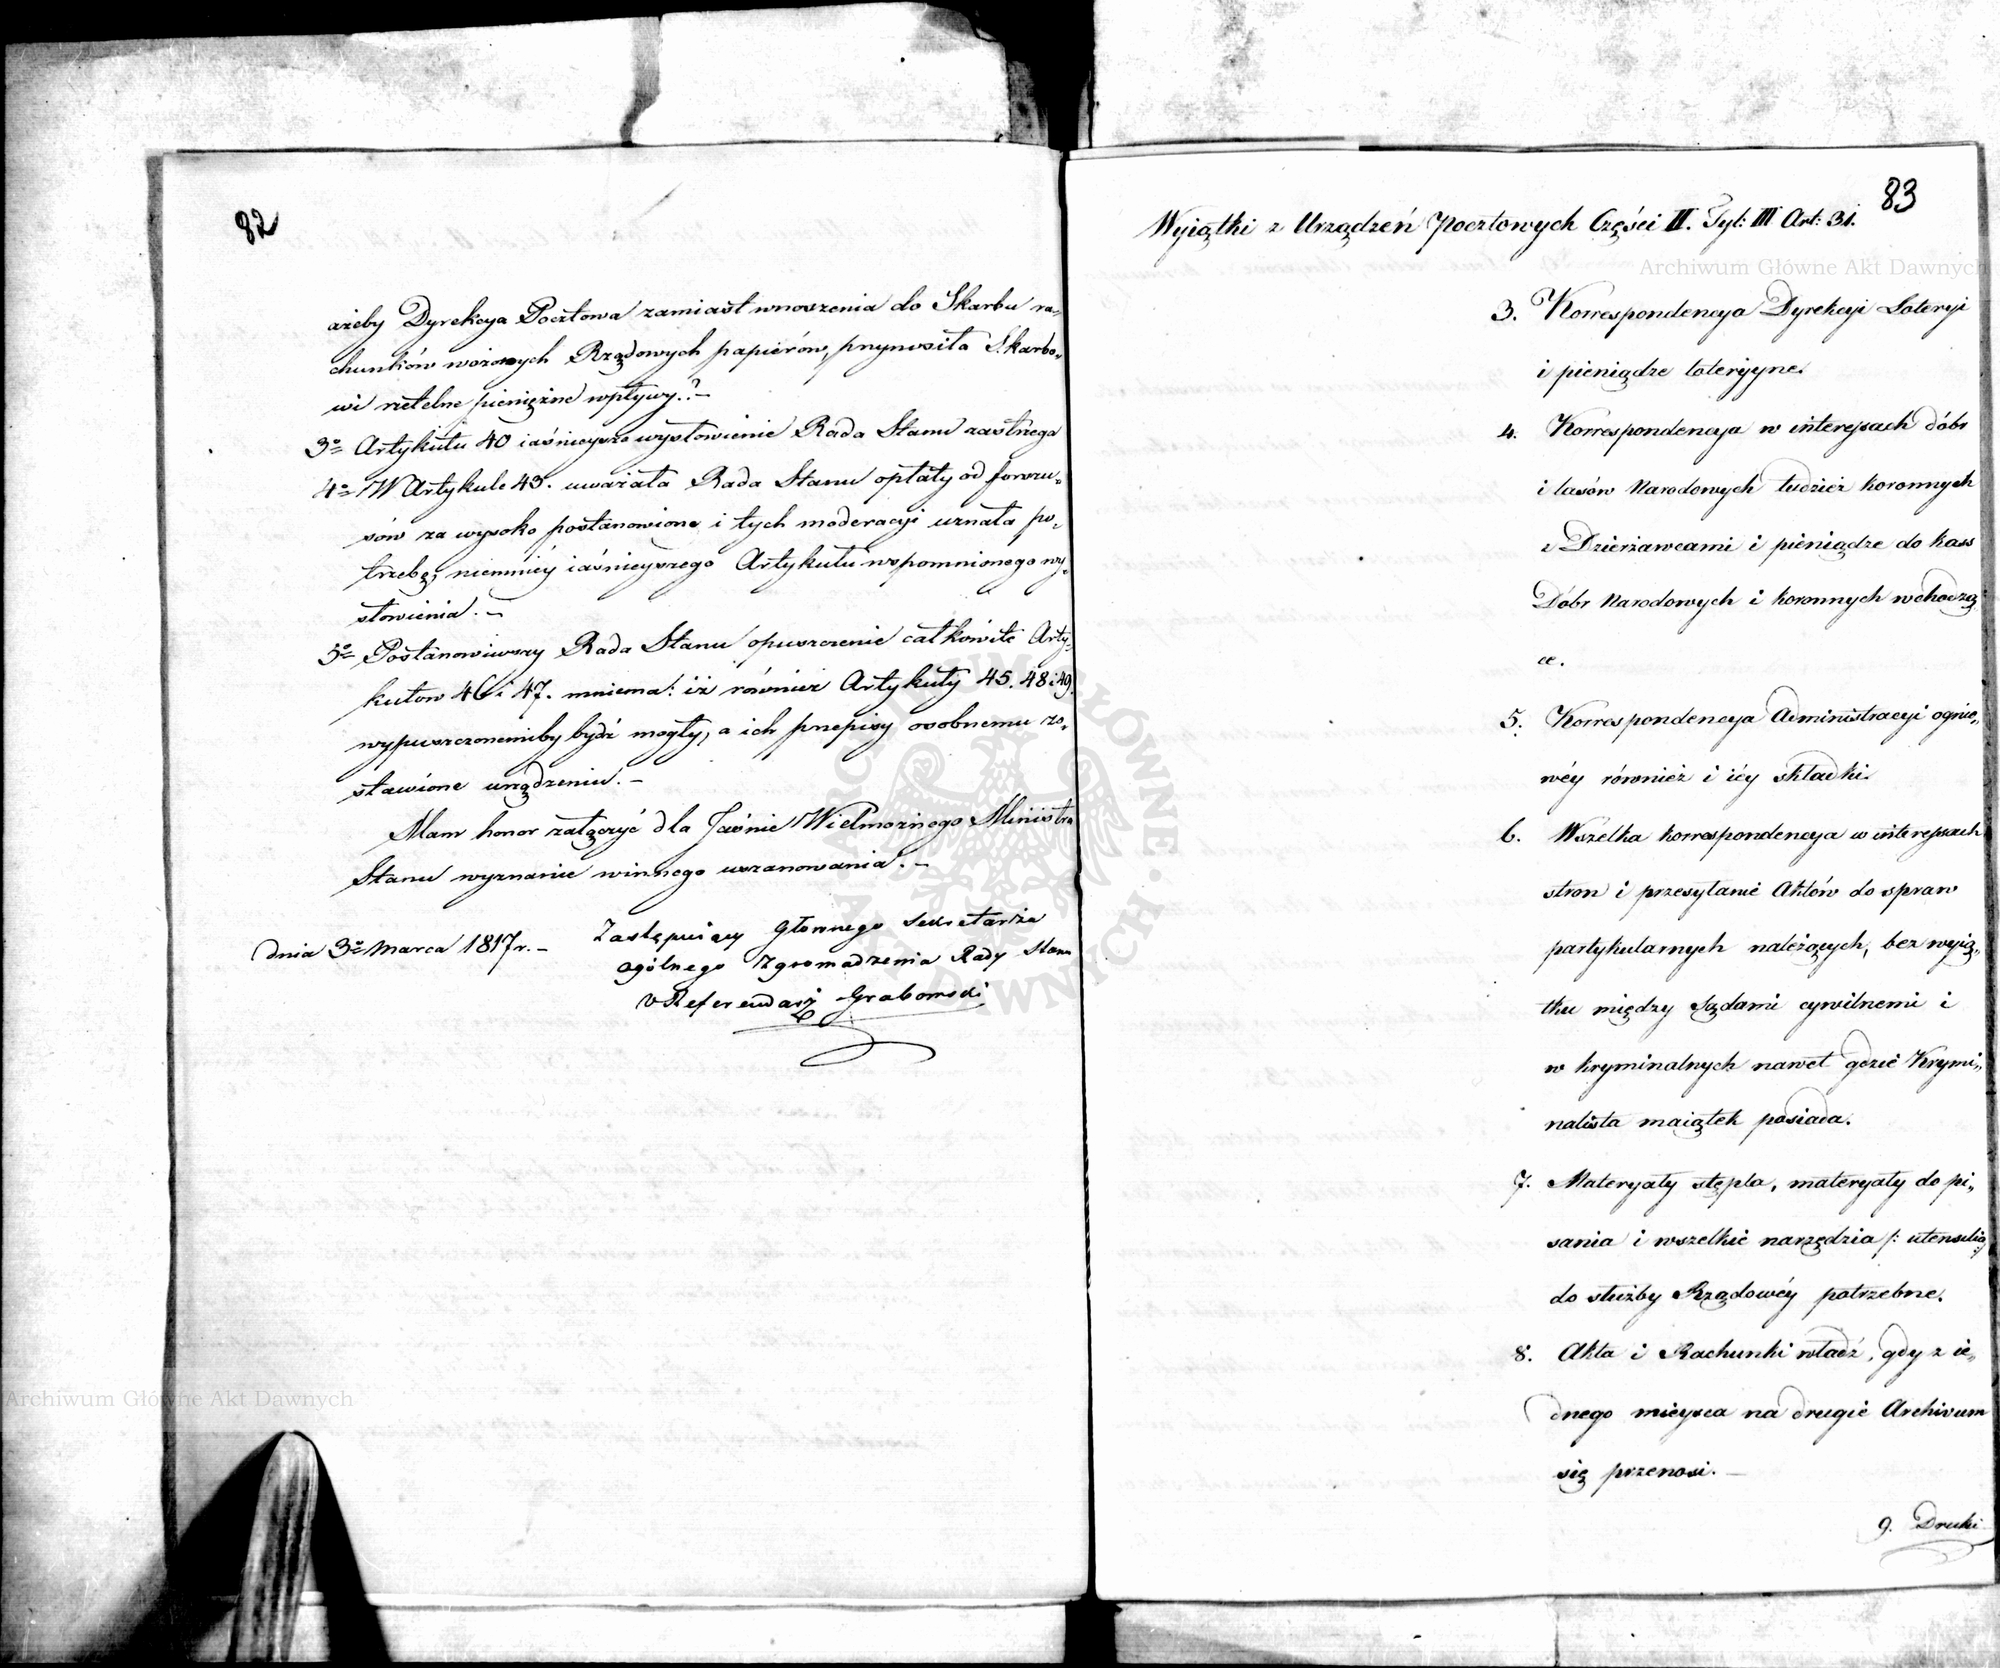 82
ażeby Dyrekcya Pocztowa zamiast wnoszenia do Skarbu ra„
chunków wożonych Rządowych papierów, przynosiła Skarbo„
wi rzetelne pieniężne wpływy?.—
3o Artykułu 40 iaśnieysze wysłowienie Rada Stanu zastrzega
4o W Artykule 43. uważała Rada Stanu opłaty od forszu„
sów za wysoko postanowione i tych moderacyi uznała po„
trzebę, niemniéy iaśnieyszego Artykułu wspomnionego wy„
słowienia.—
5o Postanowiwszy Rada Stanu opuszczenie całkowite Arty„
kułow 46 i 47. mniema: iż również Artykuły 45. 48 i 49.
wypuszczonemiby bydź mogły, a ich przepisy osobnemu zo„
stawione urządzeniu.—
Mam honor załączyć dla Jaśnie Wielmożnego Ministra
Stanu wyznanie winnego uszanowania.—
dnia 3o Marca 1817 r.—
Zastępuiący Głównego Sekretarza
ogólnego Zgromadzenia Rady Stanu
Referendarz Grabowski
83
Wyiątki z Urządzeń Pocztowych Części II. Tyt: III Art: 31.
3. Korrespondencya Dyrekcyi Loteryi
i pieniądze loteryyne.
4. Korrespondencya w interessach dóbr
i lasów Narodowych tudzież koronnych
z Dzierżawcami i pieniądze do kass
Dóbr Narodowych i koronnych wchodzą
ce.
5. Korrespondencya Administracyi ognio„
wéy również i iéy składki.
6. Wszelka korrespondencya w interessach
stron i przesyłanie Aktów do spraw
partykularnych należących, bez wyią„
tku między Sądami cywilnemi i
w kryminalnych nawet gdzie Krymi„
nalista maiątek posiada.
7. Materyały stępla, materyały do pi„
sania i wszelkie narzędzia /: utensilia :/
do służby Rządowéy potrzebne.
8. Akta i Rachunki władz, gdy z ie„
dnego mieysca na drugie Archivum
się przenosi.—
9. Druki
Archiwum Główne Akt Dawnych
Archiwum Główne Akt Dawnych